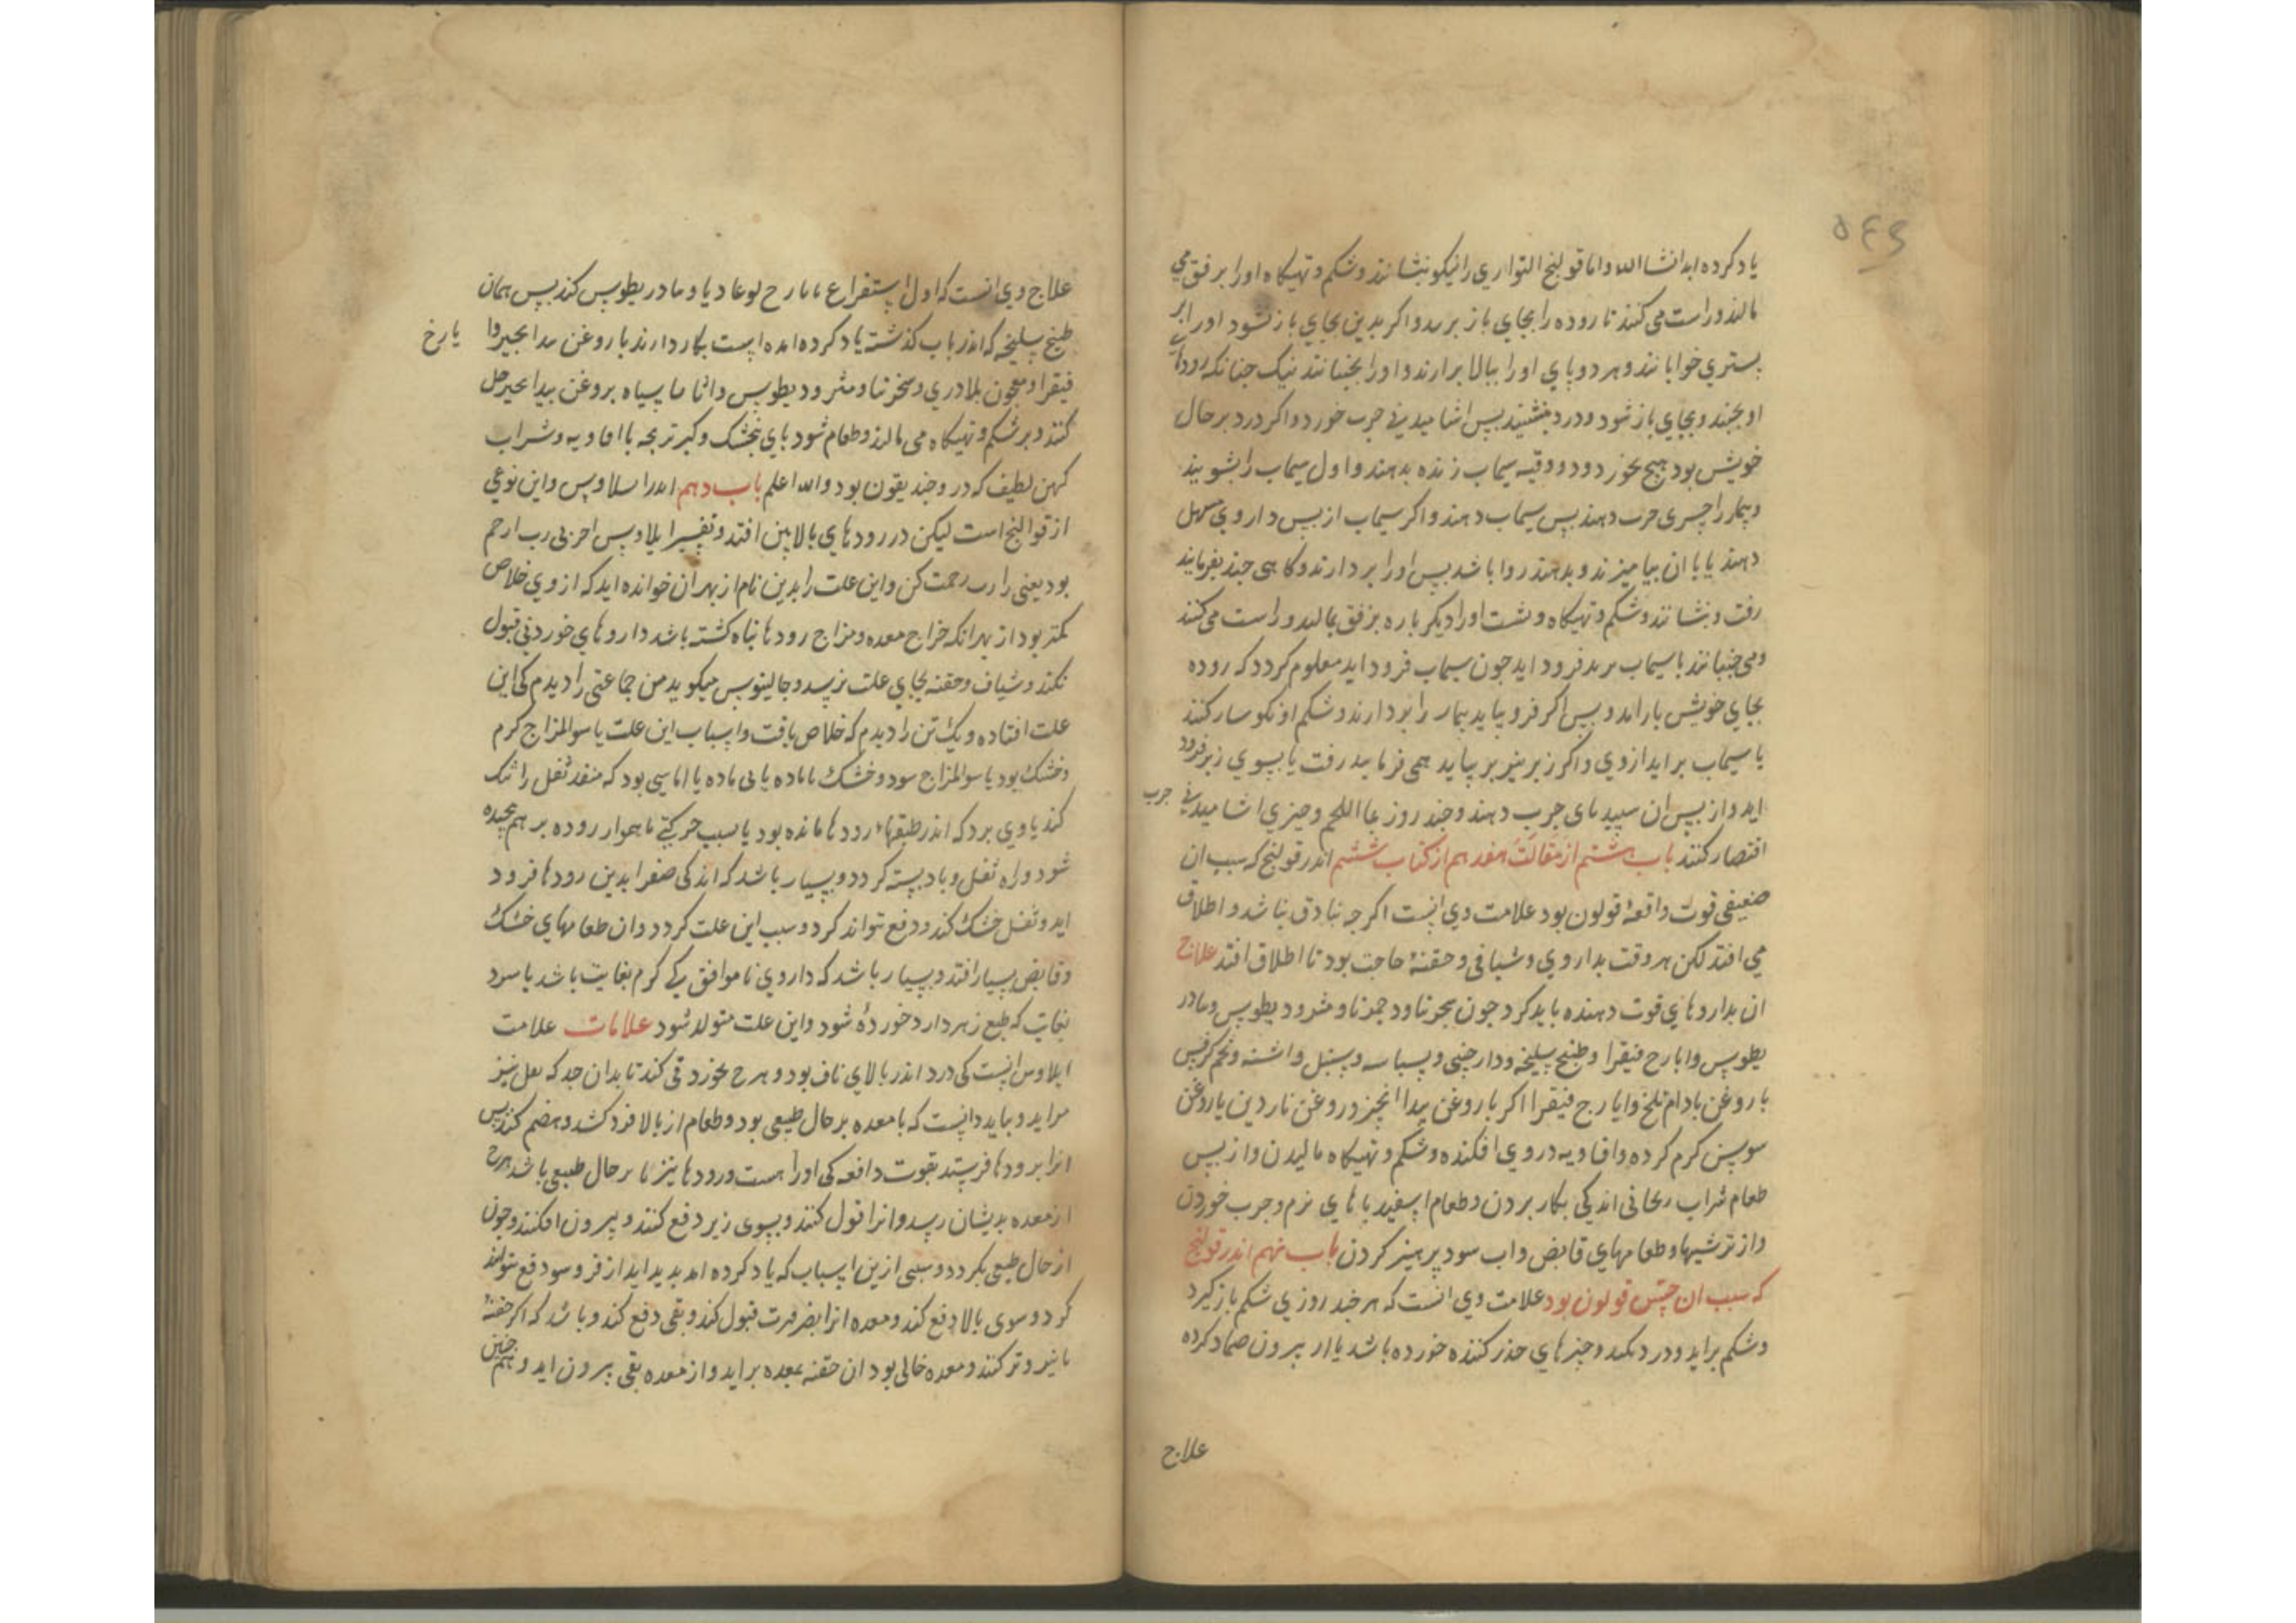 یاد کرده اید انشا الله و اما قولنج التواری را نیکو بنشانند و شکم و تهیگاه او را برفق می
مالند و راست می کنند تا روده را بجای باز برید و اکر بدین بجای باز نشود او را بر
بستری خوابانند و هر دو پای او را ببالا برارند و او را بجنبانند نیک جنانکه رودهای
او بجنبد و بجای باز شود و درد بنشیند بس اشامیدنی جرب خورد و اکر درد بر حال
خویش بود هیج نخورد و دو وقیه سیماب زنده بدهند و اول سیماب را بشویند
و بیمار را جیزی جرب دهند بس سیماب دهند و اکر سیماب از بس داروی مسهل
دهند یا با ان بیامیزند و بدهند روا باشد بس او را بردارند و کامی جند بفرمایند
رفت و بنشانند و شکم و تهیکاه و بشت او را دیکر باره برفق بمالند و راست می کنند
و می جنبانند تا سیماب بزیر فرود اید جون سیماب فرود اید معلوم کردد که روده
بجای خویش باز امد و بس اکر فرو نیاید بیمار را بردارند و شکم او نکوسار کنند
تا سیماب براید از وی و اکر زبر نیز بر نیاید همی فرمایند رفت تا بسوی زیر فرود
اید و از بس ان سبیدبای جرب دهند و جند روز بماء اللحم و جیزی اشامیدنی جرب
اقتصار کنند باب هشتم از مقالت هفدهم از کتاب ششم اندر قولنج که سبب ان
ضعیفی قوت دافعهٔ قولون بود علامت وی انست اکر جه بنادق نباشد و اطلاق
می افتد لکن هر وقت بداروی و شیافی و حقنهٔ حاجت بود تا اطلاق افتد علاج
ان بداروهای قوت دهنده باید کرد جون سجرنا و دحمرنا و مثرودیطوس و مادر
یطوس و ایارج فیقرا و طبیخ سلیخه و دارجینی و بسباسه و سنبل و اشنه و تخم کرفس
با روغن بادام تلخ و ایارج فیقرا اکر با روغن بیدانجیر و روغن ناردین یا روغن
سوسن کرم کرده و افاویه در وی افکنده و شکم و تهیکاه مالیدن و از بس
طعام شراب ریحانی اندکی بکار بردن و طعام اسفیدباهای نرم و جرب خوردن
و از ترشیها و طعامهای قابض و اب سرد برهیز کردن باب نهم اندر قولنج
که سبب ان حس قولون بود علامت وی انست که هر جند روزی شکم باز کیرد
و شکم براید و درد نکند و جیزهای خدر کننده خورده باشد یا از بیرون ضماد کرده
علاج
علاج وی انست که اول استفراغ بایارج لوغادیا و مادریطوس کند بس همان
طبیخ سلیخه که اندر باب کذشته یاد کرده امده است بکار دارند با روغن بیدانجیر و ایارج
فیقرا و معجون بلادری و سخرنا و مثرودیطوس و اثاناسیاه بروغن بیدانجیر حل
کنند و بر شکم و تهیکاه می مالند و طعام شودبای بنجشک و کبوتربجه با افاویه و شراب
کهن لطیف که در وجند یقون بود والله اعلم باب دهم اندر ایلاوس و این نوعی
از قوالنج است لیکن در رودهای بالایین افتد و تفسیر ایلاوس اخر بی رب ارحم
بود یعنی یا رب رحمت کن و این علت را بدین نام از بهر ان خوانده اید که از وی خلاص
کمتر بود از بهر انکه مزاج معده و مزاج رودها تباه کشته باشد داروهای خوردنی قبول
نکند و شیاف و حقنه بجای علت نرسد و جالینوس میکوید من جماعتی را دیدم کی این
علت افتاده و یک تن را دیدم که خلاص یافت و اسباب این علت یا سوالمزاج کرم
و خشک بود یا سوالمزاج سرد و خشک با ماده یا بی ماده یا اماسی بود که منفذ ثفل را تنک
کند یا وی بود که اندر طبقهاء رودها مانده بود یا بسبب حرکتی ناهموار روده بر هم بیجیده
شود و راه ثفل و باد بسته کردد و بسیار باشد که اندکی صفرا بدین رودها فرود
اید و ثفل خشک کند و دفع نتواند کرد و سبب این علت کردد و ان طعامهای خشک
و قابض بسیار افتد و بسیار باشد که داروی ناموافق یکی کرم بغایت باشد یا سرد
بغایت که طبع زهر دارد خورده شود و این علت متولد شود علامات علامت
ایلاوس انست کی درد اندر بالای ناف بود و هرج بخورد قی کند تا بدان حد که ثفل نیز
براید و بباید دانست که تا معده بر حال طبیعی بود و طعام از بالا فرو کشد و هضم کند بس
انرا برودها فرستد بقوت دافعه کی او را هست و رودها نیز تا بر حال طبیعی باشد هرج
از معده بدیشان رسد و انرا قبول کنند و بسوی زیر دفع کنند و بیرون افکنند و جون
از حال طبیعی بکردد و سببی از این اسباب که یاد کرده امد بدید اید از فرو سو دفع نتوانند
کرد و سوی بالا دفع کند و معده انرا بضرورت قبول کند و بقی دفع کند و باشد که اکر حقنهٔ
تا نیرو تر کنند و معده خالی بود ان حقنه بمعده براید و از معده بقی بیرون اید و همجنین